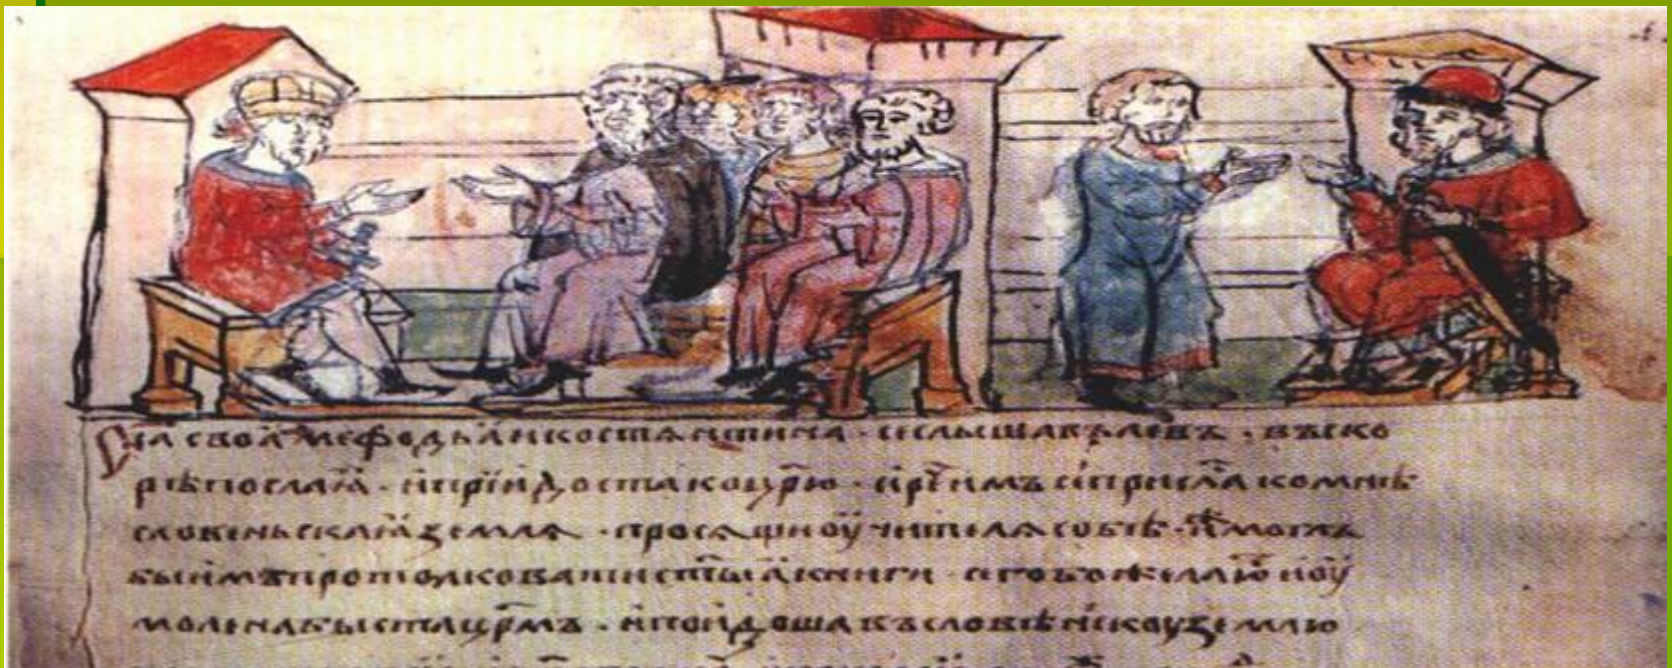 сн҃а своа мефодьа и костѧнтина · и слышавъ левъ · въско
рѣ посла ꙗ · и прїидоста ко цр҃ю · и рече имъ се присла ко мнѣ
словеньскаꙗ землѧ · просѧщи оучителѧ собѣ · моглъ
бы имъ протолковати ст҃ыа книги · сего бо желаю и оу
молена быста цр҃мъ · и поидоша въ словѣньскоу землю